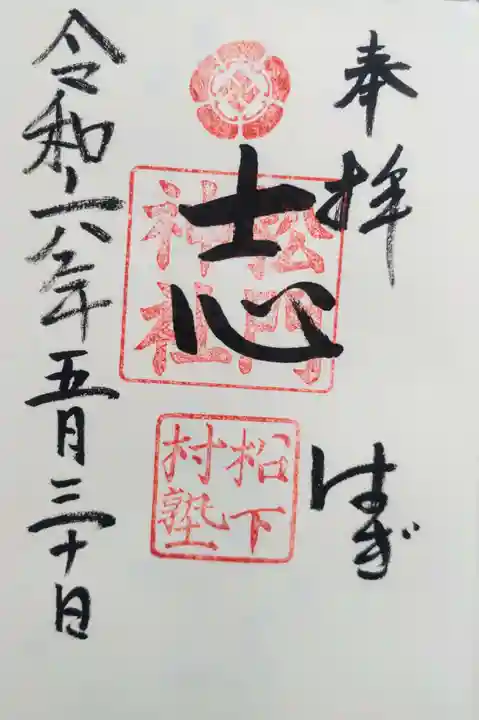 奉拝
はぎ
志
松門神社
松下村塾
令和六年五月三十日